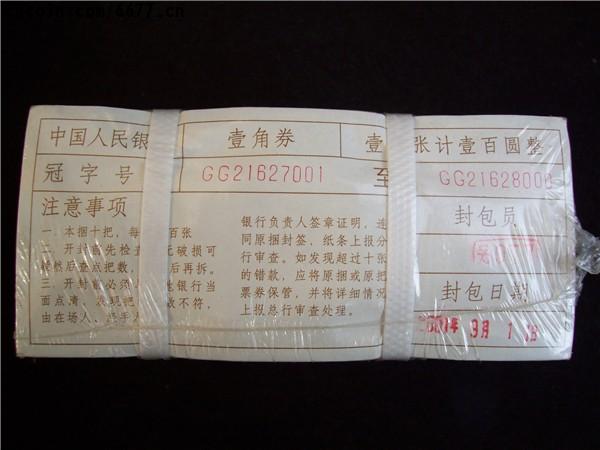 中国人民银 壹角券 壹 张计壹百圆整
冠字号 GG21627001 至 GG21628000
注意事项
一．本捆十把，每 百张
二．开封前先检查 无破损可
然后查点把数， 后再拆。
三．开封前必须 银行当
面点清，发现把 数不符，
由在场人、经手人
银行负责人签章证明，连
同原捆封签、纸条上报分
行审查。如发现超过十张
的错款，应将原捆或原把
票券保管，并将详细情况
上报总行审查处理。
封包员
封包日期
年 3月 1